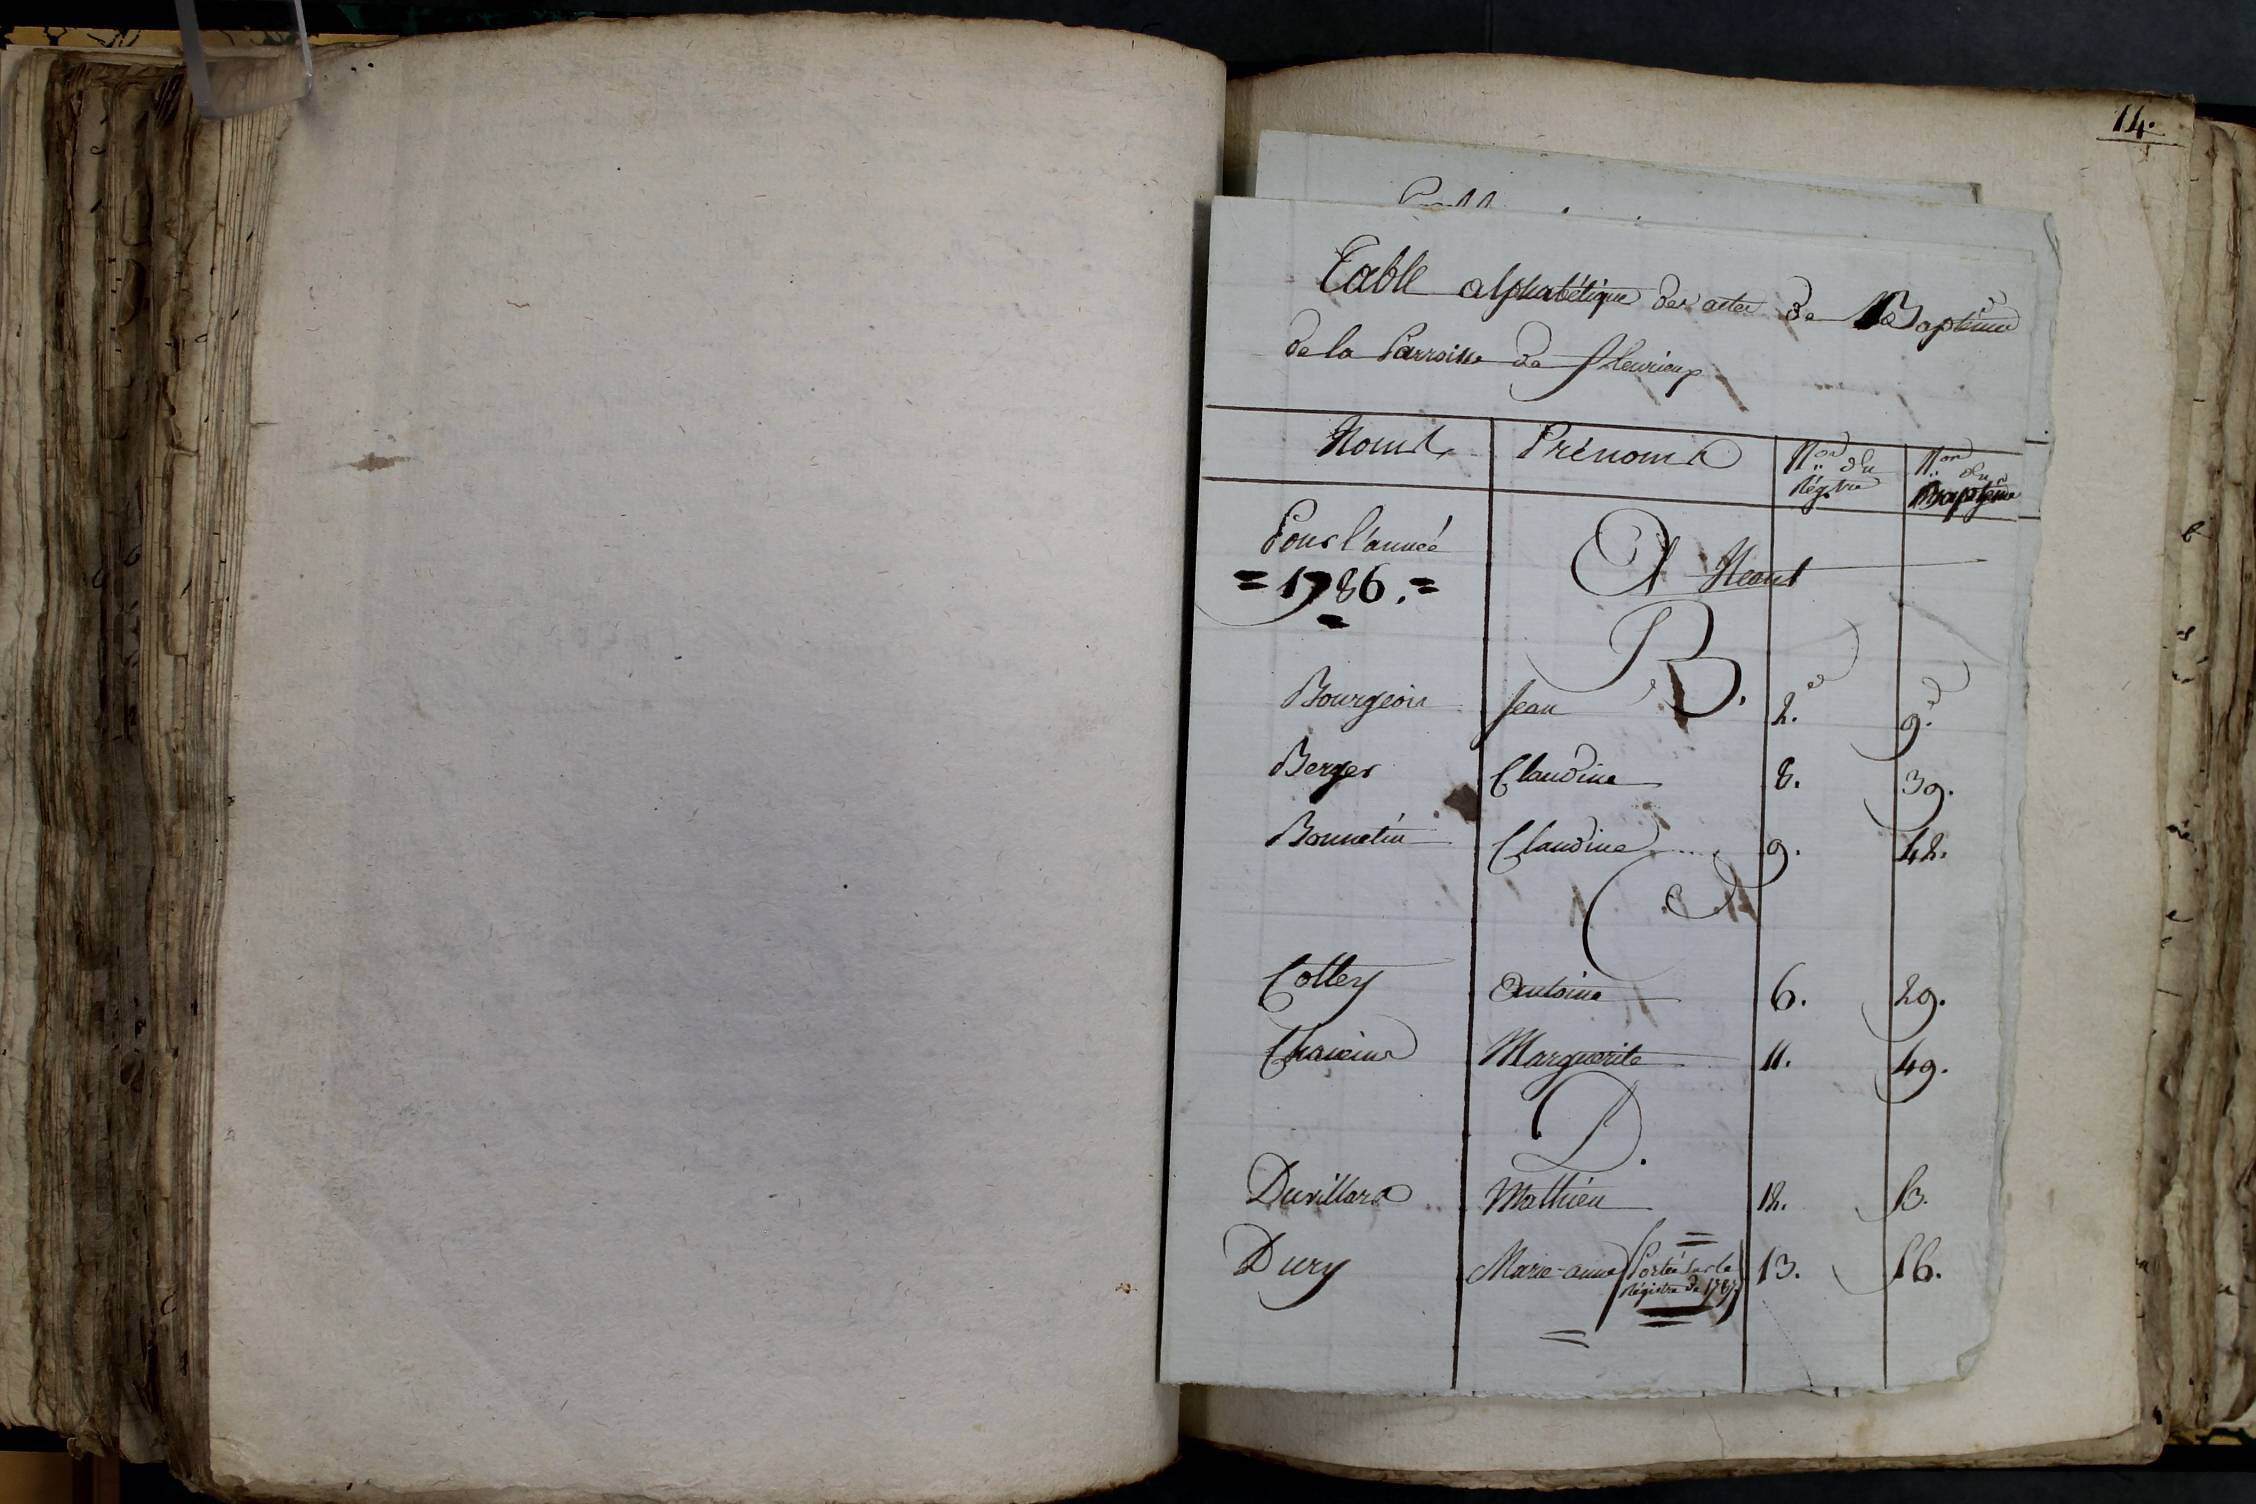 14.
Table alphabétique des actes de Baptême
de la Parroisse de fleurieux
Noms Prénoms N.os du Régistre N.os du Baptême
Pour l'année
= 1786. =
A Neant
B.
Bourgeois Jean 2. 9.
Berger Claudine 8. 39.
Bonnetin Claudine 9. 42.
C
Colley antoine 6. 29.
Marguerite 11. 49.
D.
Duvillard Mathieu 12. 53.
Dury Marie-anne (Portée sur le Régistre de 1787) 13. 56.